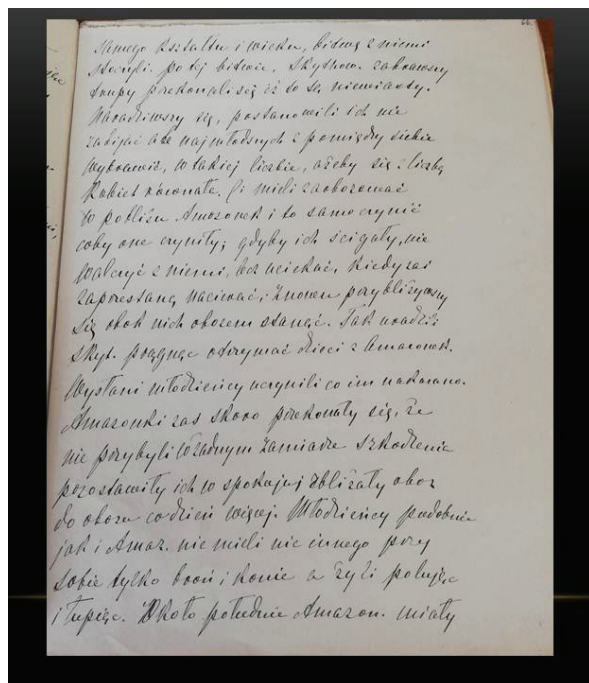 66
samego kształtu i wieku, bitwę z niemi
stoczyli. po tej bitwie, Skythow. zabrawszy
trupy przekonali się iż to są niewiasty.
Naradziwszy się, postanowili ich nie
zabijać ale najmłodszych z pomiędzy siebie
wyprawić, w takiej liczbie, ażeby się z liczbą
kobiet równała. Ci mieli zaobozować
w pobliżu Amazonek i to samo czynić
coby one czyniły; gdyby ich ścigały, nie
walczyć z niemi, lecz uciekać, kiedy zaś
zaprzestaną nacierać, znowu przybliżywszy
się obok nich obozem stanąć. Tak uradzili
Skyt. pragnąc otrzymać dzieci z Amazonek.
Wysłani młodzieńcy uczynili co im nakazano.
Amazonki zaś skoro przekonały się, że
nie przybyli w żadnym zamiarze szkodzenia
pozostawiły ich w spokoju i zbliżały oboz
do obozu codzień więcej. Młodzieńcy podobnie
jak i Amaz. nie mieli nic innego przy
sobie tylko broń i konie a żyli polując
i łupiąc. Około południa Amazon. miały